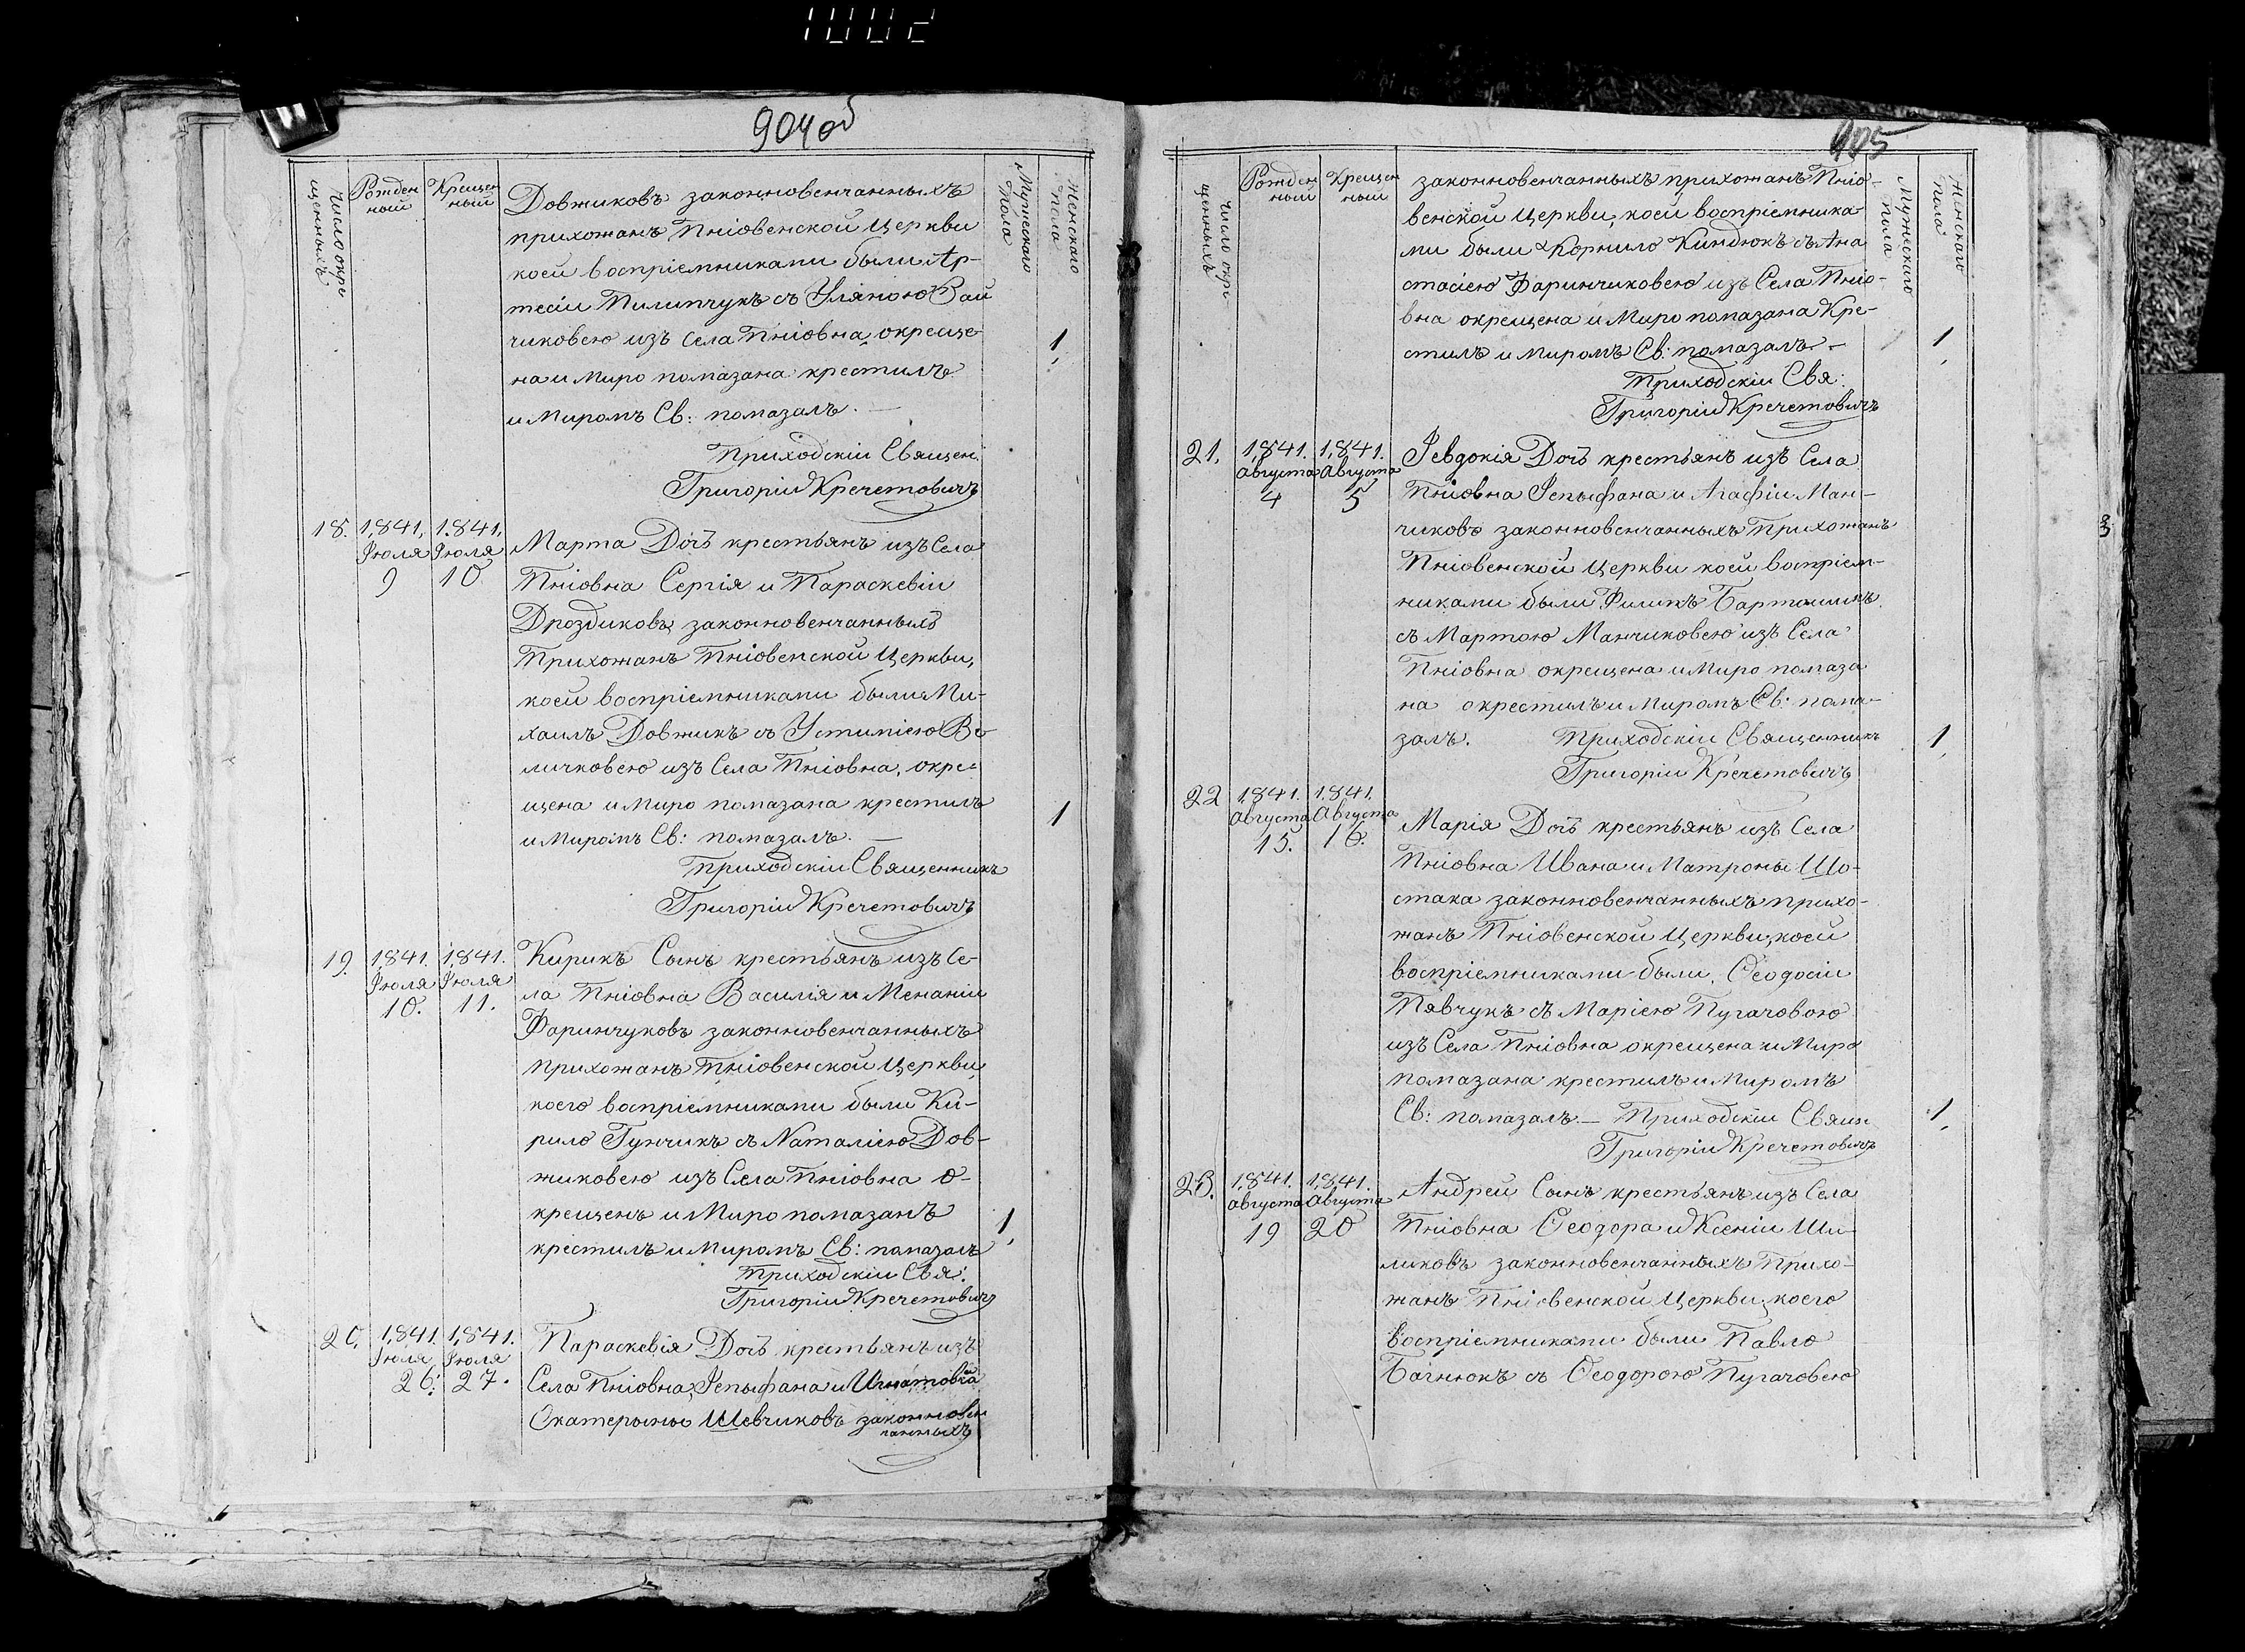 904 об
Число окре
щенныхъ
Рожден
ный
Крещен
ный
Мужеского
Пола
Женскаго
пола
Довжиковъ законновенчанныхъ
прихожанъ Пніовенской Церкви
коей воспріемниками были Ар-
темій Пилипчукъ съ Уляною Зай
чиковею изъ Села Пніовна, окреще-
на и Миро помазана крестилъ
и Миромъ Св: помазалъ. —
Приходскій Священ.
Григорій Кречетовичъ
1
18. 1,841. 1.841.
Іюля Іюля
9 10
Марта Дочъ крестьянъ изъ Села
Пніовна Сергія и Параскевіи
Дроздиковъ законновенчанныхъ
Прихожанъ Пніовенской Церкви,
коей воспріемниками были Ми-
хаилъ Довжикъ съ Устиніею Ве
личковею изъ Села Пніовна, окре-
щена и Миро помазана крестилъ
и Миромъ Св: помазалъ. —
Приходскій Священникъ
Григорій Кречетовичъ
1
19. 1,841. 1,841.
Іюля Іюля
10. 11.
Кирикъ Сынъ крестьянъ изъ Се-
ла Пніовна Василія и Менаніи
Фаринчуковъ законновенчанныхъ
прихожанъ Пніовенской Церкви,
коего воспріемниками были Ки-
рило Гунчикъ съ Наталіею Дов-
жиковею изъ Села Пніовна о-
крещенъ и Миро помазанъ
крестилъ и Миромъ Св: помазалъ
Приходскій Свя:
Григорій Кречетовичъ
1
20. 1,841 1,841.
Іюля Іюля
26. 27.
Параскевія Дочъ крестьянъ изъ
Села Пніовна Іепыфана и
Екатерыны Шевчиковъ законновен
чанныхъ
905
Число окре
щенныхъ
Рожден
ный
Крещен
ный
Мужескаго
пола
Женскаго
пола
законновенчанныхъ прихожанъ Пніо-
венской Церкви, коей воспріемника-
ми были Корнило Киндюкъ съ Ана
стасіею Фаринчиковею изъ Села Пніо-
вна окрещена и Миро помазана Кре-
стилъ и Миромъ Св: помазалъ —
Приходскій Свя:
Григорій Кречетовичъ
1
21. 1,841. 1,841.
Августа Августа
4 5
Іевдокія Дочъ крестьянъ изъ Села
Пніовна Іепыфана и Агафіи Ман-
чиковъ законновенчанныхъ Прихожанъ
Пніовенской Церкви коей воспріем-
никами были Филипъ
съ Мартою Манчиковею изъ Села
Пніовна окрещена и Миро помаза
на окрестилъ и Миромъ Св: пома-
залъ. Приходскій Священникъ
Григорій Кречетовичъ
1
22 1,841. 1,841.
Августа Августа
15. 16.
Марія Дочъ крестьянъ изъ Села
Пніовна Ивана и Матроны Шо-
стака законновенчанныхъ прихо-
жанъ Пніовенской Церкви, коей
воспріемниками были, Ѳеодосій
Пявчукъ съ Маріею Пугачовою
изъ Села Пніовна окрещена и Миро
помазана крестилъ и Миромъ
Св: помазалъ — Приходскій Свящ:
Григорій Кречетовичъ
1
23. 1,841. 1,841.
Августа Августа
19 20
Андрей Сынъ крестьянъ изъ Села
Пніовна Ѳеодора и Ксеніи Ши-
ликовъ законновенчанныхъ Прихо-
жанъ Пніовенской Церкви, коего
воспріемниками были Павло
Багнюкъ съ Ѳеодорою Пугачовею